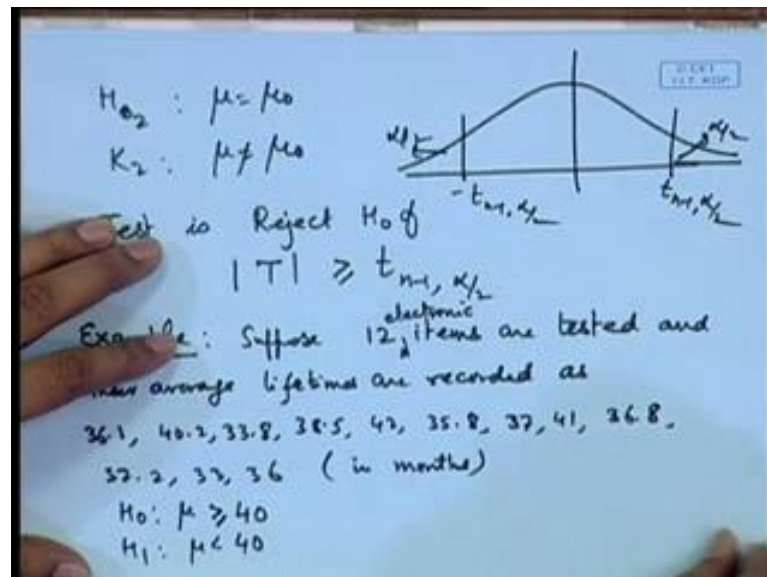 H₀₂ : μ = μ₀
K₂ : μ ≠ μ₀
α/2
α/2
-t_{n-1, α/2}
t_{n-1, α/2}
Test is Reject H₀ if
|T| ≥ t_{n-1, α/2}
electronic
Example : Suppose 12 items are tested and
average lifetimes are recorded as
36.1, 40.2, 33.8, 38.5, 42, 35.8, 37, 41, 36.8,
37.2, 33, 36 (in months)
H₀: μ ≥ 40
H₁: μ < 40